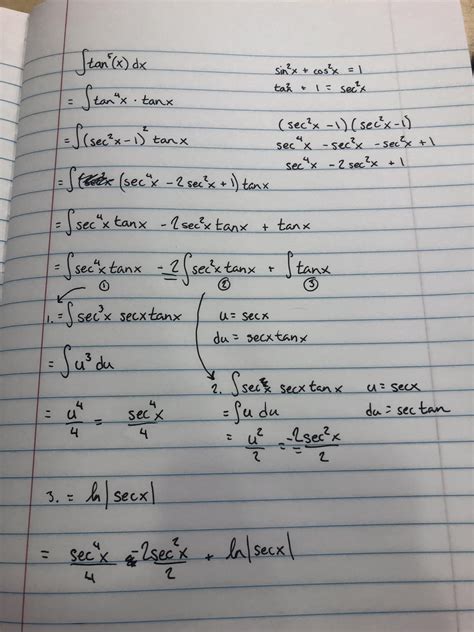 ∫tan⁵(x) dx
sin²x + cos²x = 1
tan² + 1 = sec²x
= ∫tan⁴x · tanx
(sec²x − 1)(sec²x − 1)
= ∫(sec²x − 1)² tanx
sec⁴x − sec²x − sec²x + 1
sec⁴x − 2sec²x + 1
= ∫ (sec⁴x − 2sec²x + 1) tanx
= ∫sec⁴x tanx − 2sec²x tanx + tanx
= ∫sec⁴x tanx − 2∫sec²x tanx + ∫tanx
① ② ③
1. = ∫sec³x secx tanx
u = secx
du = secx tanx
= ∫u³ du
= u⁴/4 = sec⁴x/4
2. ∫sec x secx tanx
u = secx
= ∫u du
du = sec tan
= u²/2 = −2sec²x/2
3. = ln|secx|
= sec⁴x/4 − 2sec²x/2 + ln|secx|